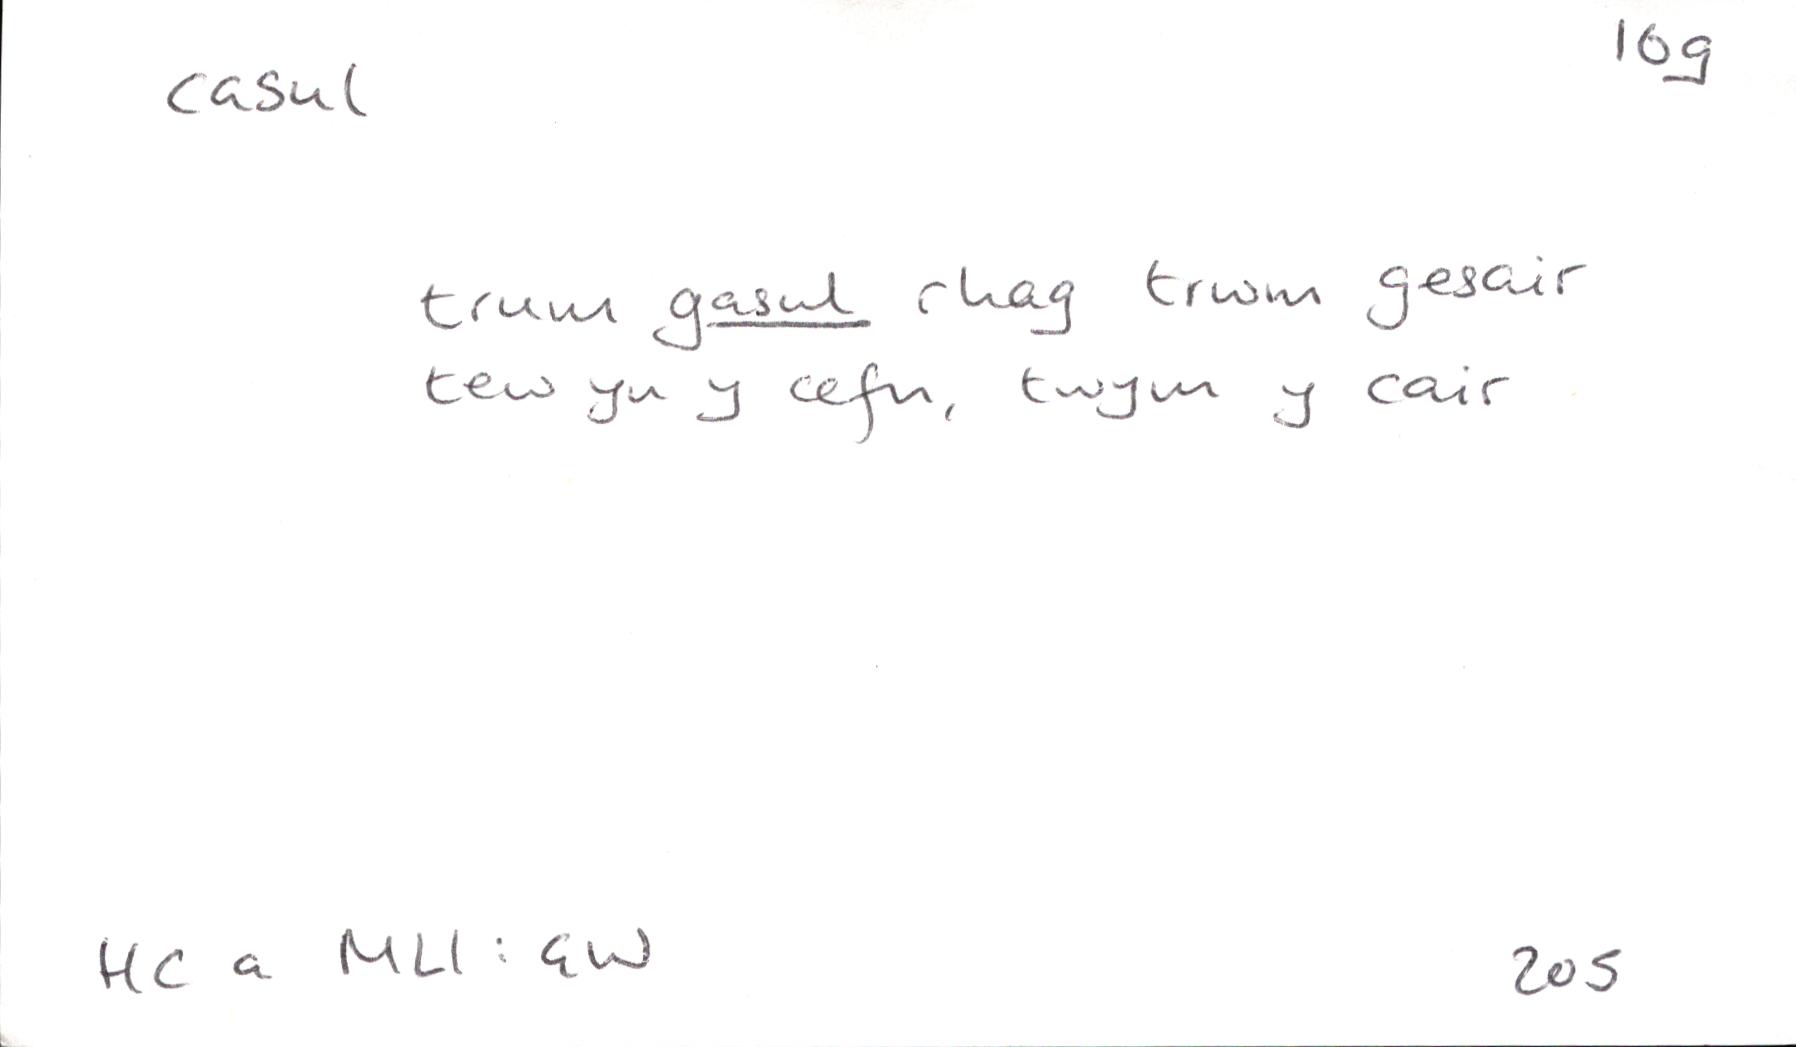 casul
16g
trum gasul rhag trwm gesair
tew yn y cefn, twym y cair
HC a MLl: GW
205